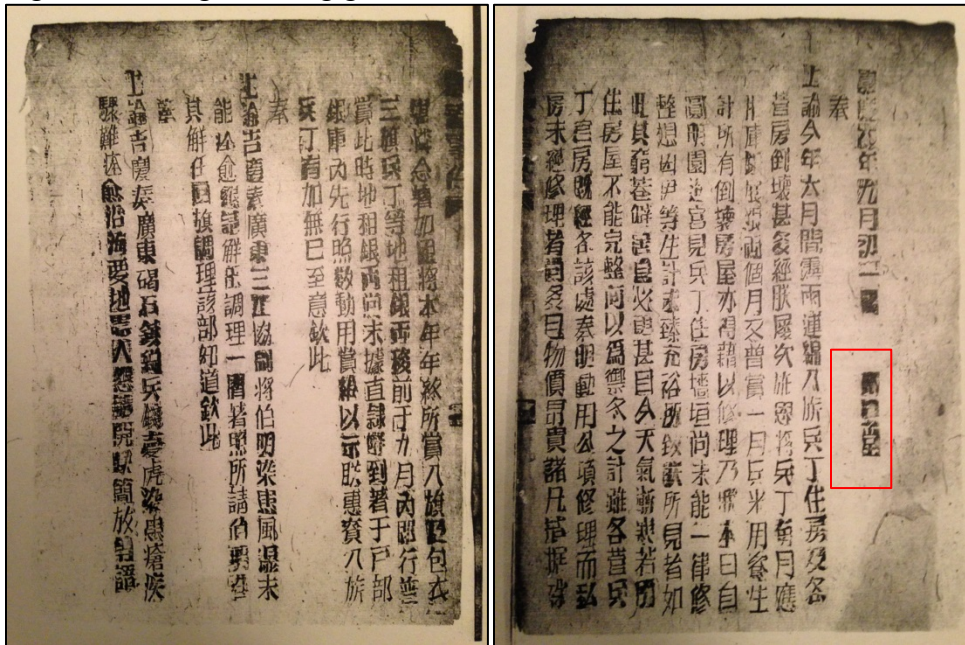 年九月初二
奉
上諭今年六月間霪雨連綿八旗兵丁住房及各
營房倒壞甚多經朕屢次施恩將兵丁每月應
扣庫銀展限兩個月又普賞一月兵米用資生
計所有倒塌房屋亦得藉以修理乃朕本日自
圓明園進宮見兵丁住房墻垣尚未能一律修
整想因伊等生計未臻充裕所致第所見者如
此其窮巷僻居自必更甚目今天氣漸寒若
住房屋不能完整何以為禦冬之計雖各營兵
丁官房既經各該處奏明動用公項修理而私
房未經修理者尚多且物價昂貴諸凡拮据殊
堪軫念著加恩將本年年終所賞八旗及包衣
三旗兵丁等地租銀兩移前于九月內即行普
賞此時地租銀兩尚未據直隸解到著于戶部
銀庫內先行照數動用賞給以示朕惠賚八旗
兵丁有加無已至意欽此
奉
上諭吉慶奏廣東三江協副將伯明染患風濕未
能痊愈懇請解任調理一摺著照所請伯明准
其解任回旗調理該部知道欽此
奉
上諭吉慶奏廣東碣石鎮總兵錢夢虎染患瘡疾
驟難痊愈沿海要地需人懇請開缺簡放等語